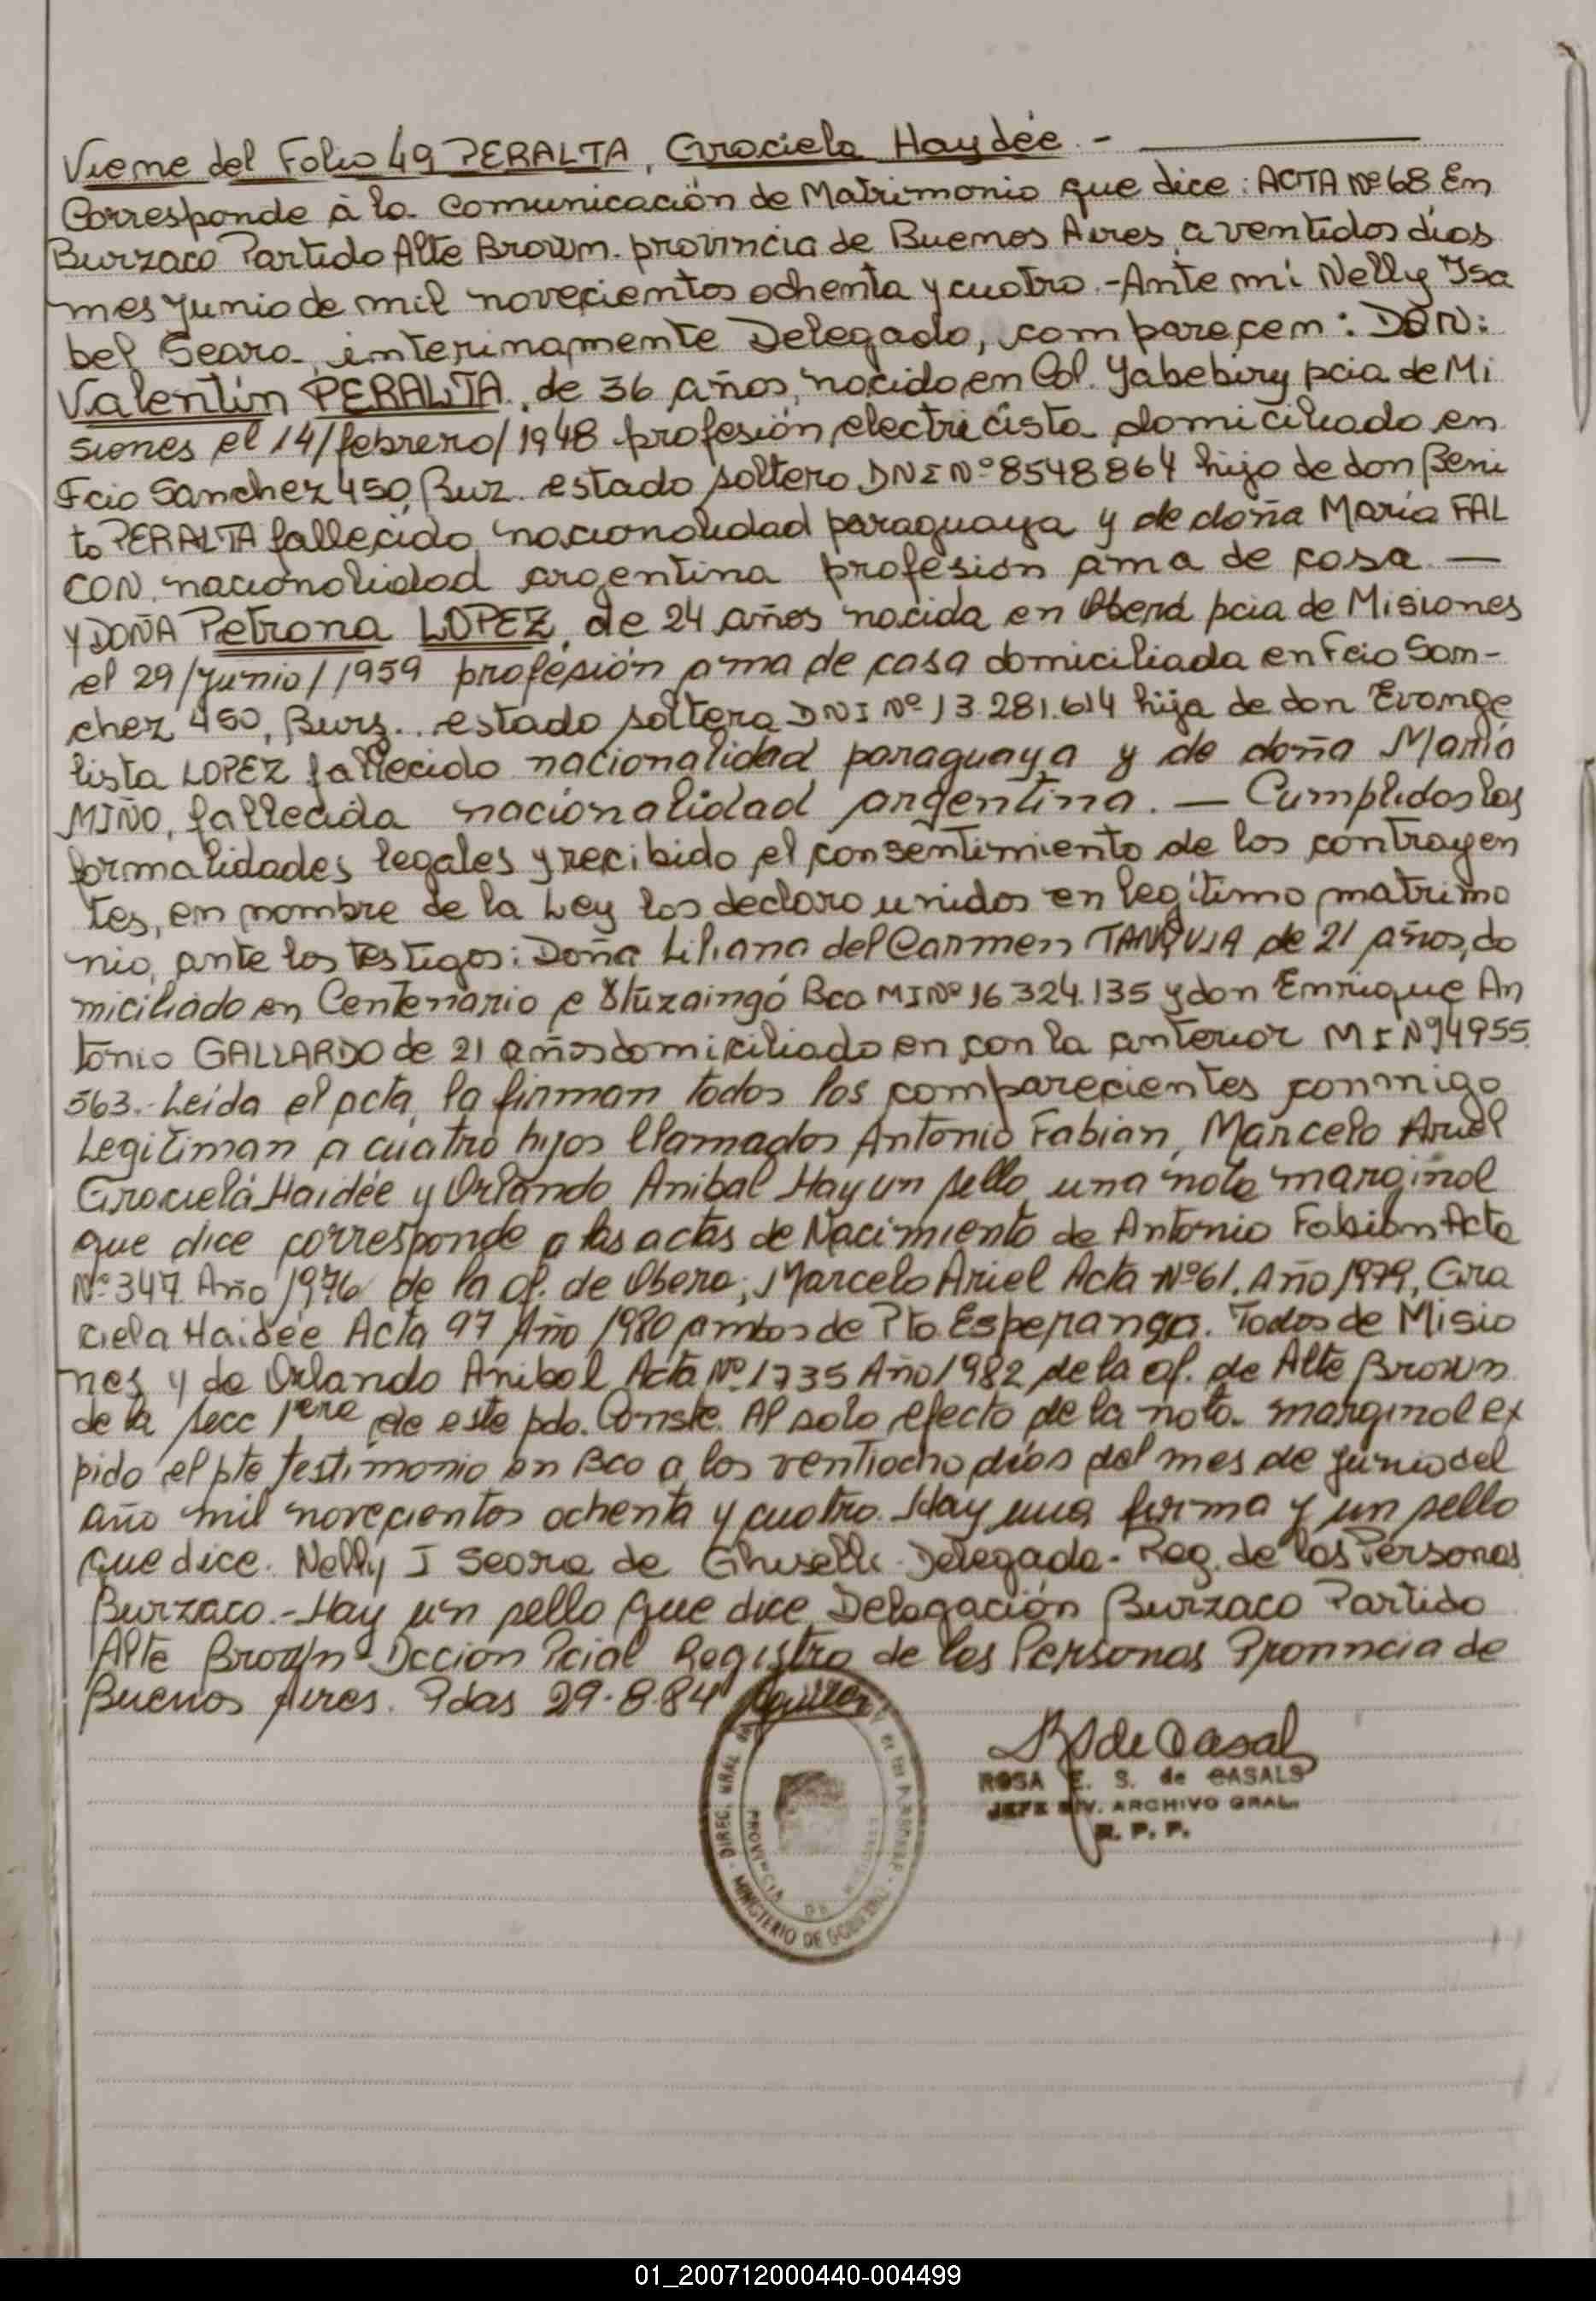 Viene del Folio 49 PERALTA, Graciela Haydée.-
Corresponde à la comunicación de Matrimonio que dice: ACTA Nº 68 En
Burzaco Partido Alte Brown. provincia de Buenos Aires, a ventidos dias
mes junio de mil novecientos ochenta y cuatro.-Ante mi Nelly Isa
bel Seara, interinamente Delegado, comparecen: DON:
Valentín PERALTA, de 36 años, nacido en Col. Yabebiry pcia de Mi
siones el 14/febrero/1948 profesión electricista domiciliado en
Fcio Sanchez 450, Burz. estado soltero DNI Nº 8548864 hijo de don Beni
to PERALTA fallecido, nacionalidad paraguaya y de doña María FAL
CON, nacionalidad argentina profesión ama de casa. —
Y DOÑA Petrona LOPEZ, de 24 años nacida en Oberá pcia de Misiones
el 29/junio/1959 profesión ama de casa domiciliada en Fcio San-
chez 450, Burz.. estado soltera DNI Nº 13.281.614 hija de don Evange
lista LOPEZ fallecido nacionalidad paraguaya y de doña María
MIÑO, fallecida nacionalidad argentina. — Cumplidas las
formalidades legales y recibido el consentimiento de los contrayen
tes, en nombre de la Ley los declaro unidos en legítimo matrimo
nio, ante los testigos: Doña Liliana del Carmen de 21 años, do
miciliado en Centenario e Ituzaingó Bco MI Nº 16.324.135 y don Enrique An
tonio GALLARDO de 21 años domiciliado en con la anterior MI Nº 14955
563.- Leída el acta, la firman todos los comparecientes conmigo
Legitiman a cuatro hijos llamados Antonio Fabian, Marcelo Ariel
Graciela Haidée y Orlando Anibal Hay un sello una nota marginal
que dice corresponde a las actas de Nacimiento de Antonio Fabián Acta
Nº 347 Año 1976 de la of. de Obera; Marcelo Ariel Acta Nº 61. Año 1979, Gra
ciela Haidée Acta 97 Año 1980 ambos de Pto Esperanza. Todos de Misio
nes y de Orlando Anibal Acta Nº 1735 Año 1982 de la of. de Alte Brown
de la secc 1era de este pdo. Conste. Al solo efecto de la nota marginal ex
pido el pte testimonio en Bco a los ventiocho días del mes de junio del
año mil novecientos ochenta y cuatro. Hay una firma y un sello
que dice. Nelly I Seara de Ghiselli Delegada- Reg. de las Personas
Burzaco.-Hay un sello que dice Delegación Burzaco Partido
Alte Brown Dccion Pcial Registro de las Personas Provincia de
Buenos Aires. Pdas 29-8-84
de Casal
ROSA E. S. de CASALS
JEFE DIV. ARCHIVO GRAL.
R. P. P.
DIREC. GRAL
PROVINCIA DE MISIONES
MINISTERIO DE GOBIERNO
01_200712000440-004499